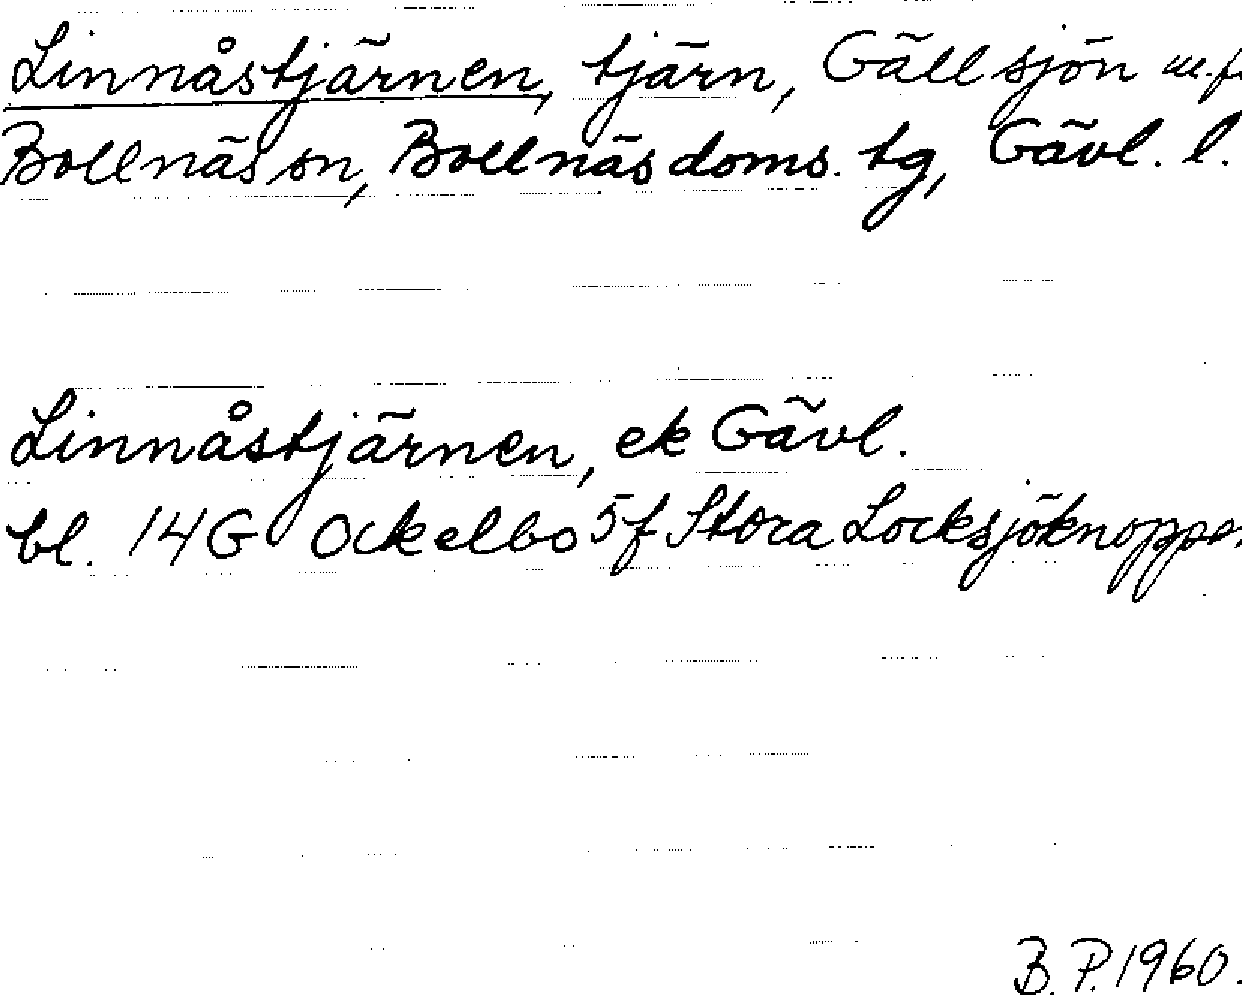 Linnåstjärnen, tjärn, Gällsjön m.fl
Bollnäs sn, Bollnäs doms. tg, Gävl. l.
Linnåstjärnen, ek Gävl.
bl. 14G Ockelbo 5f Stora Locksjöknoppen
B. P. 1960.